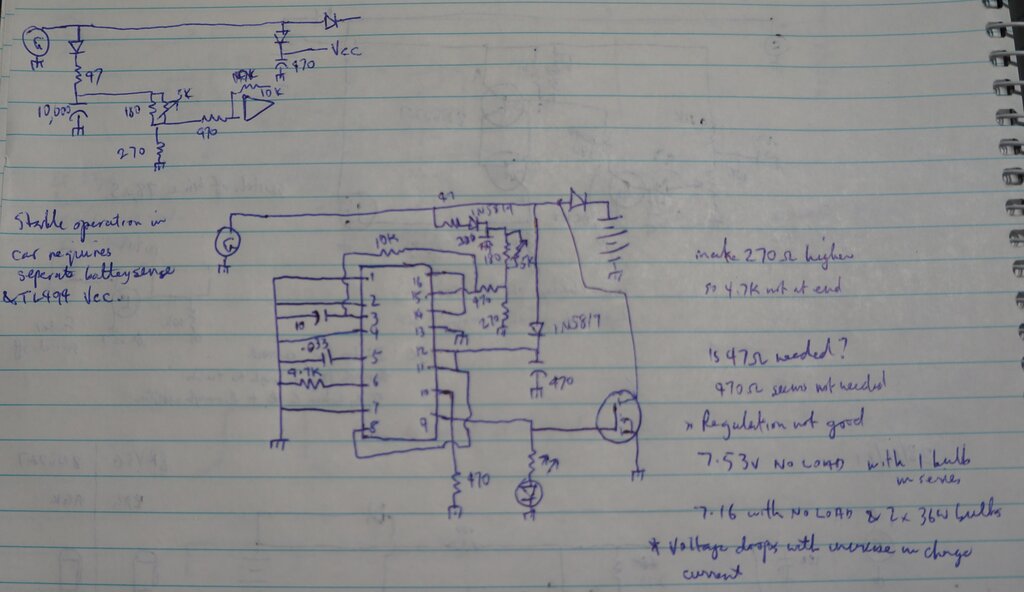 G
Vcc
470
47
10,000
180
5K
10K
470
270
Stable operation in
car requires
seperate battery sense
& TL494 Vcc.
G
47
1N5819
10K
180
5K
470
270
1N5819
470
1
2
3
4
5
6
7
8
16
15
14
13
12
11
9
10
.033
4.7K
470
make 270Ω higher
so 4.7K not at end
Is 47Ω needed?
470Ω seems not needed
Regulation not good
7.53V NO LOAD with 1 bulb
in series
7.16 with NO LOAD & 2x 36W bulbs
* Voltage drops with increase in charge
current